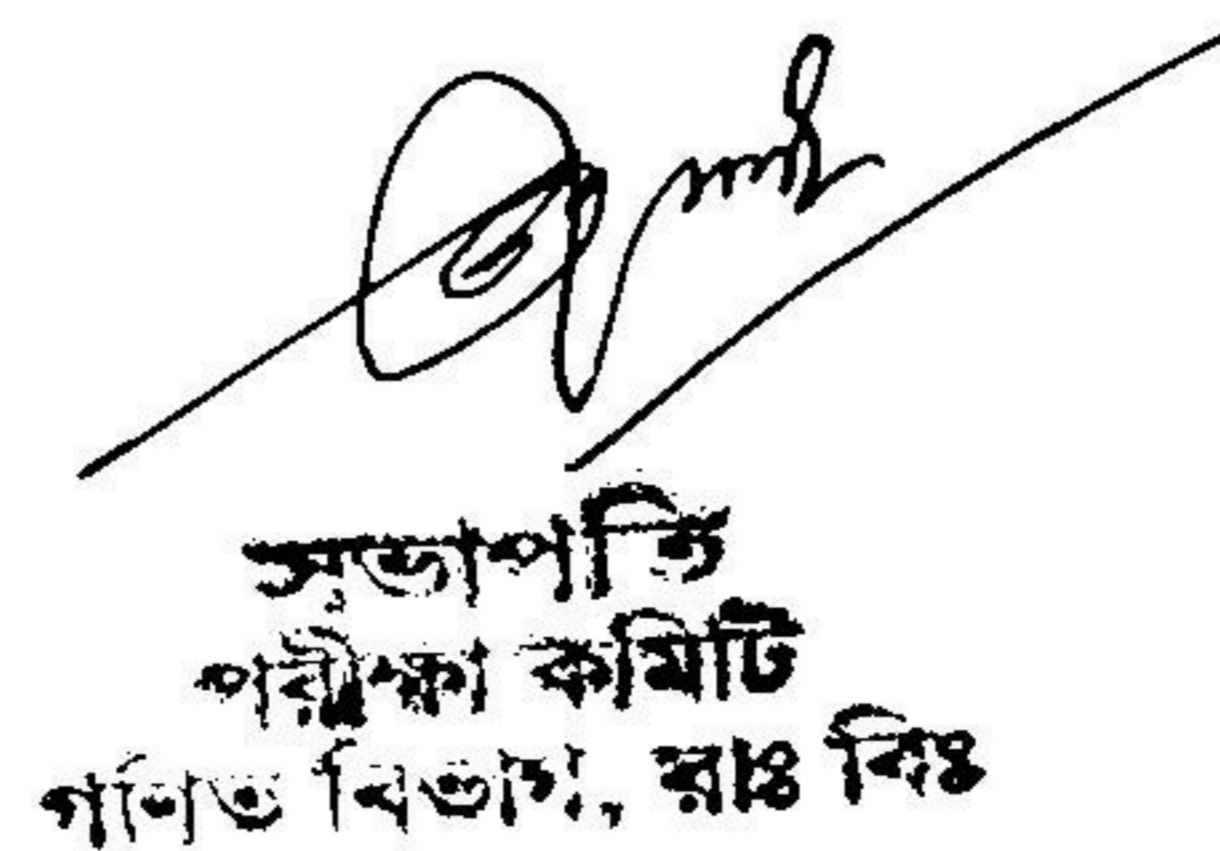 সভাপতি
পরীক্ষা কমিটি
গণিত বিভাগ, রাঃ বিঃ